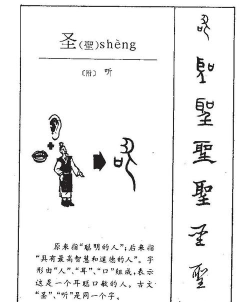 圣(聖)shèng
〔附〕 听
原来指“聪明的人”;后来指
“具有最高智慧和道德的人”。字
形由“人”、“耳”、“口”组成,表示
这是一个耳聪口敏的人。古文
“圣”、“听”是同一个字。
聖
聖
聖
聖
圣
聖